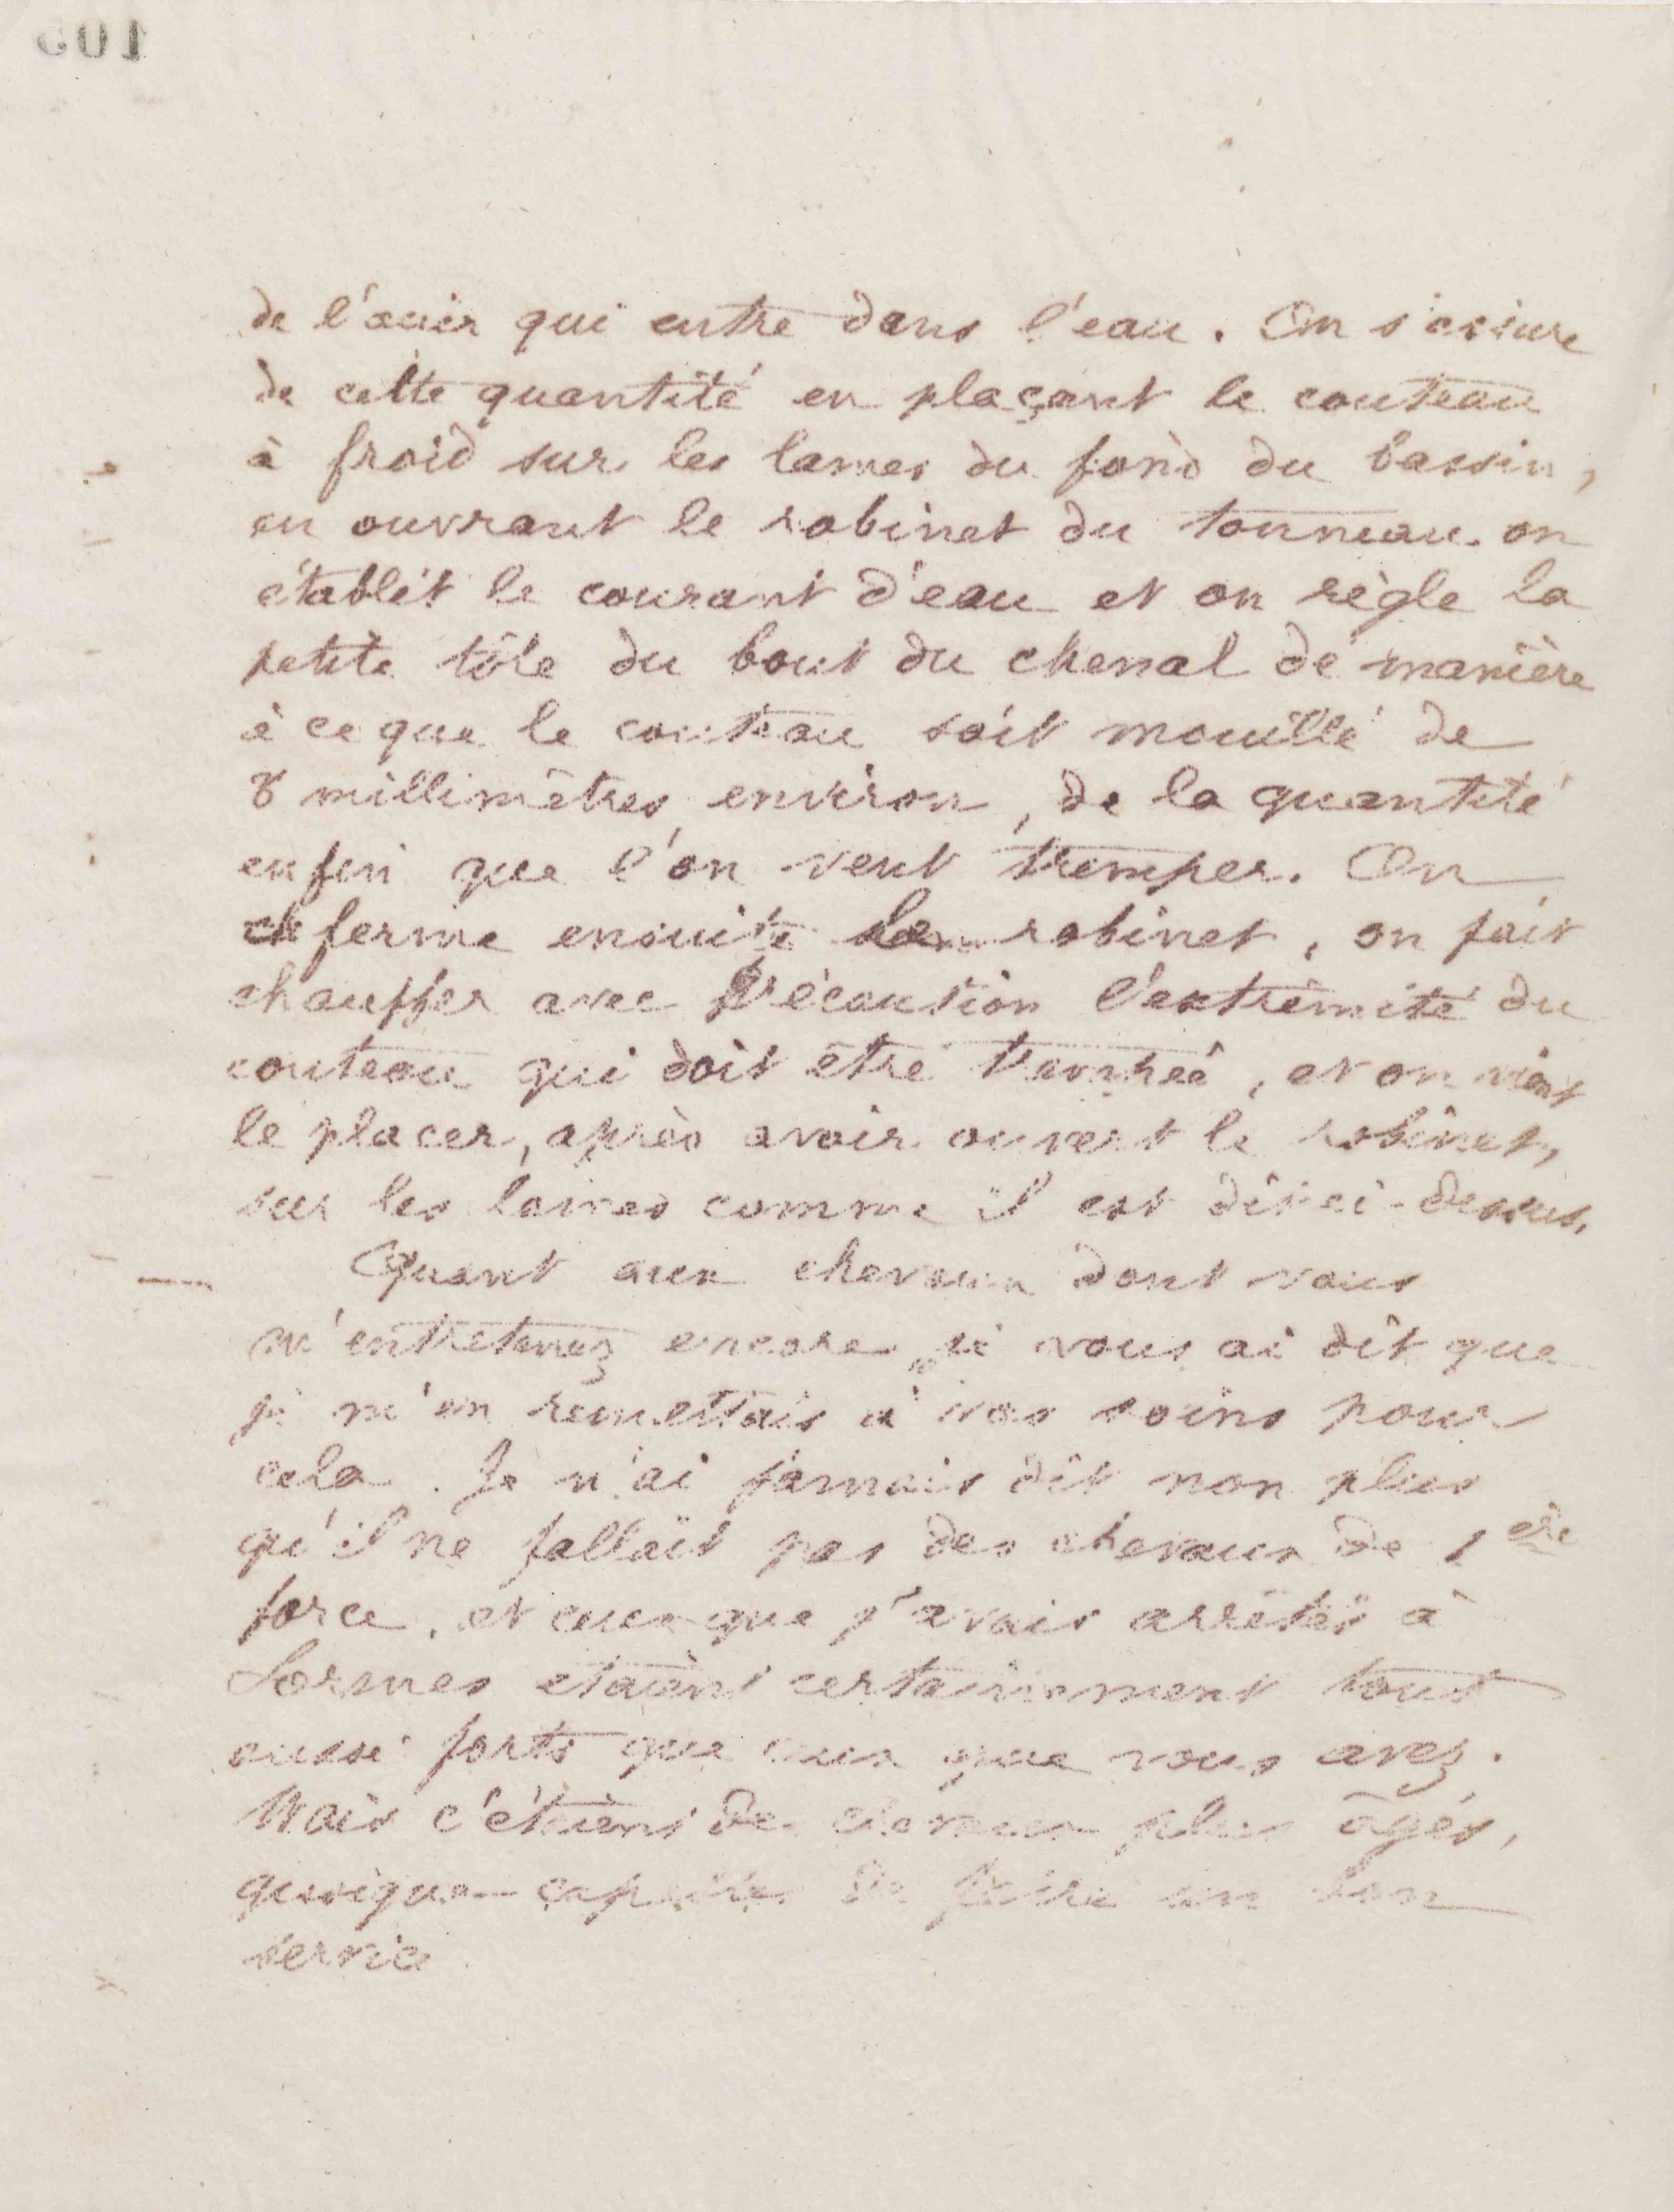 de l'acier qui entre dans l'eau. On s'assure
de cette quantité en plaçant le couteau
à froid sur les lames du fond du bassin,
en ouvrant le robinet du tonneau on
établit le courant d'eau et on règle la
petite tôle du bout du chenal de manière
à ce que le couteau soit mouillé de
8 millimètres environ, de la quantité
enfin que l'on veut tremper. On
ferme ensuite le robinet, on fait
chauffer avec précaution l'extrémité du
couteau qui doit être trempée, et on vient
le placer, après avoir ouvert le robinet,
sur les lames comme il est dit ci-dessus.
Quant aux chevaux dont vous
m'entretenez encore, je vous ai dit que
je m'en remettais à vos soins pour
cela. Je n'ai jamais dit non plus
qu'il ne fallait pas des chevaux de 1ère
force, et ceux que j'avais arrêtés à
Lormes étaient certainement tout
aussi forts que ceux que vous avez.
Mais c'étaient des chevaux plus âgés,
quoique capables de faire un bon
service.